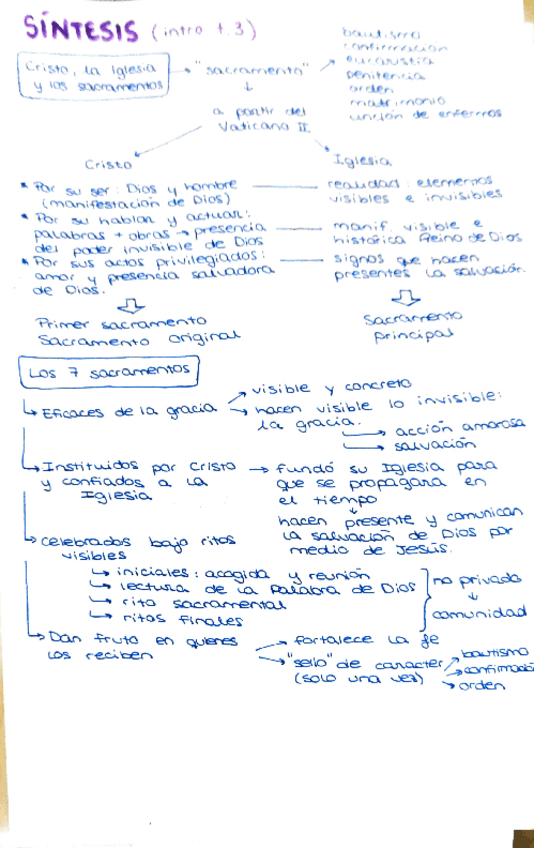 SÍNTESIS (intro t.3)
bautismo
confirmación
eucaristía
penitencia
orden
matrimonio
unción de enfermos
Cristo, la Iglesia
y los sacramentos
→ "sacramento"
↓
a partir del
Vaticano II
Cristo
• Por su ser: Dios y hombre
(manifestación de Dios)
• Por su hablar y actuar:
palabras + obras → presencia
del poder invisible de Dios
• Por sus actos privilegiados:
amor y presencia salvadora
de Dios.
Primer sacramento
Sacramento original
Iglesia
realidad: elementos
visibles e invisibles
manif. visible e
histórica Reino de Dios
signos que hacen
presentes la salvación.
Sacramento
principal
Los 7 sacramentos
↳ Eficaces de la gracia
→ visible y concreto
→ hacen visible lo invisible:
la gracia.
→ acción amorosa
→ salvación
↳ Instituidos por Cristo
y confiados a la
Iglesia
→ fundó su Iglesia para
que se propagara en
el tiempo
↓
hacen presente y comunican
la salvación de Dios por
medio de Jesús.
↳ celebrados bajo ritos
visibles
↳ iniciales: acogida y reunión
↳ lectura de la Palabra de Dios
↳ rito sacramental
↳ ritos finales
no privado
↓
comunidad
↳ Dan fruto en quienes
los reciben
→ fortalece la fe
→ "sello" de caracter
(solo una vez)
→ bautismo
→ confirmació
→ orden